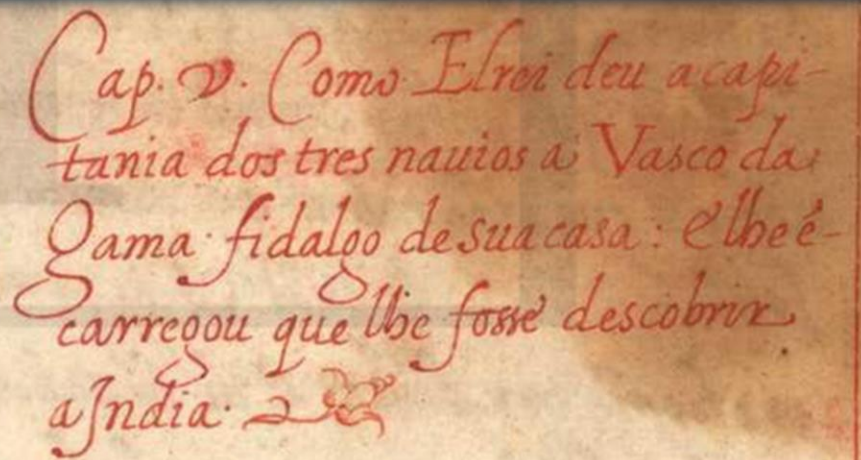 Cap. v. Como Elrei deu a capi-
tania dos tres nauios a Vasco da
gama fidalgo de sua casa : E lhe ẽ-
carregou que lhe fosse descobrir
a India.